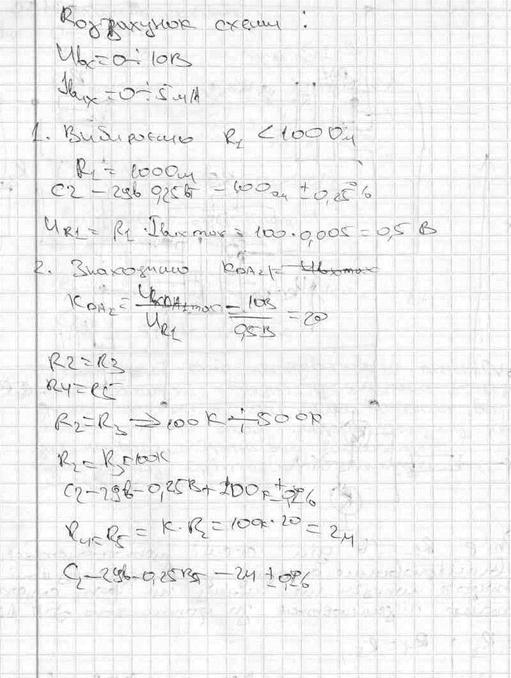 Розрахунок схеми :
Uвх = 0÷10В
Iвих = 0÷5 мА
1. Вибираємо R₁ < 100 Ом
R₁ = 100 Ом
С2 – 29в 0,25Вт – 100 Ом ± 0,25%
UR1 = R₁ · Iвих max = 100 · 0,005 = 0,5 В
2. Знаходимо KDA2 =
KDA2 = = 10В / 0,5В = 20
UR1
R2 = R3
R4 = R5
R₂ = R₃ → 100К ÷ 500К
R₂ = R₃ = 100К
С2 – 29в – 0,25Вт
R₄ = R₅ = K · R₂ = 100к · 20 = 2м
С2 – 29в – 0,25Вт – 2М